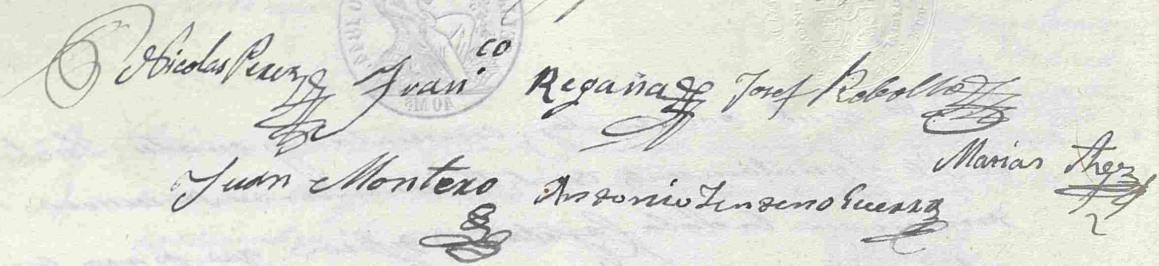 Nicolas Perez Fran.co Regaña Josef Rebollo
Juan Montero Antonio Guerra Matias
40 MS